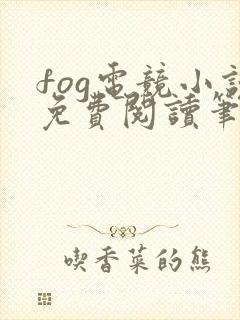 fog電競小說
免費閱讀筆
喫香菜的熊